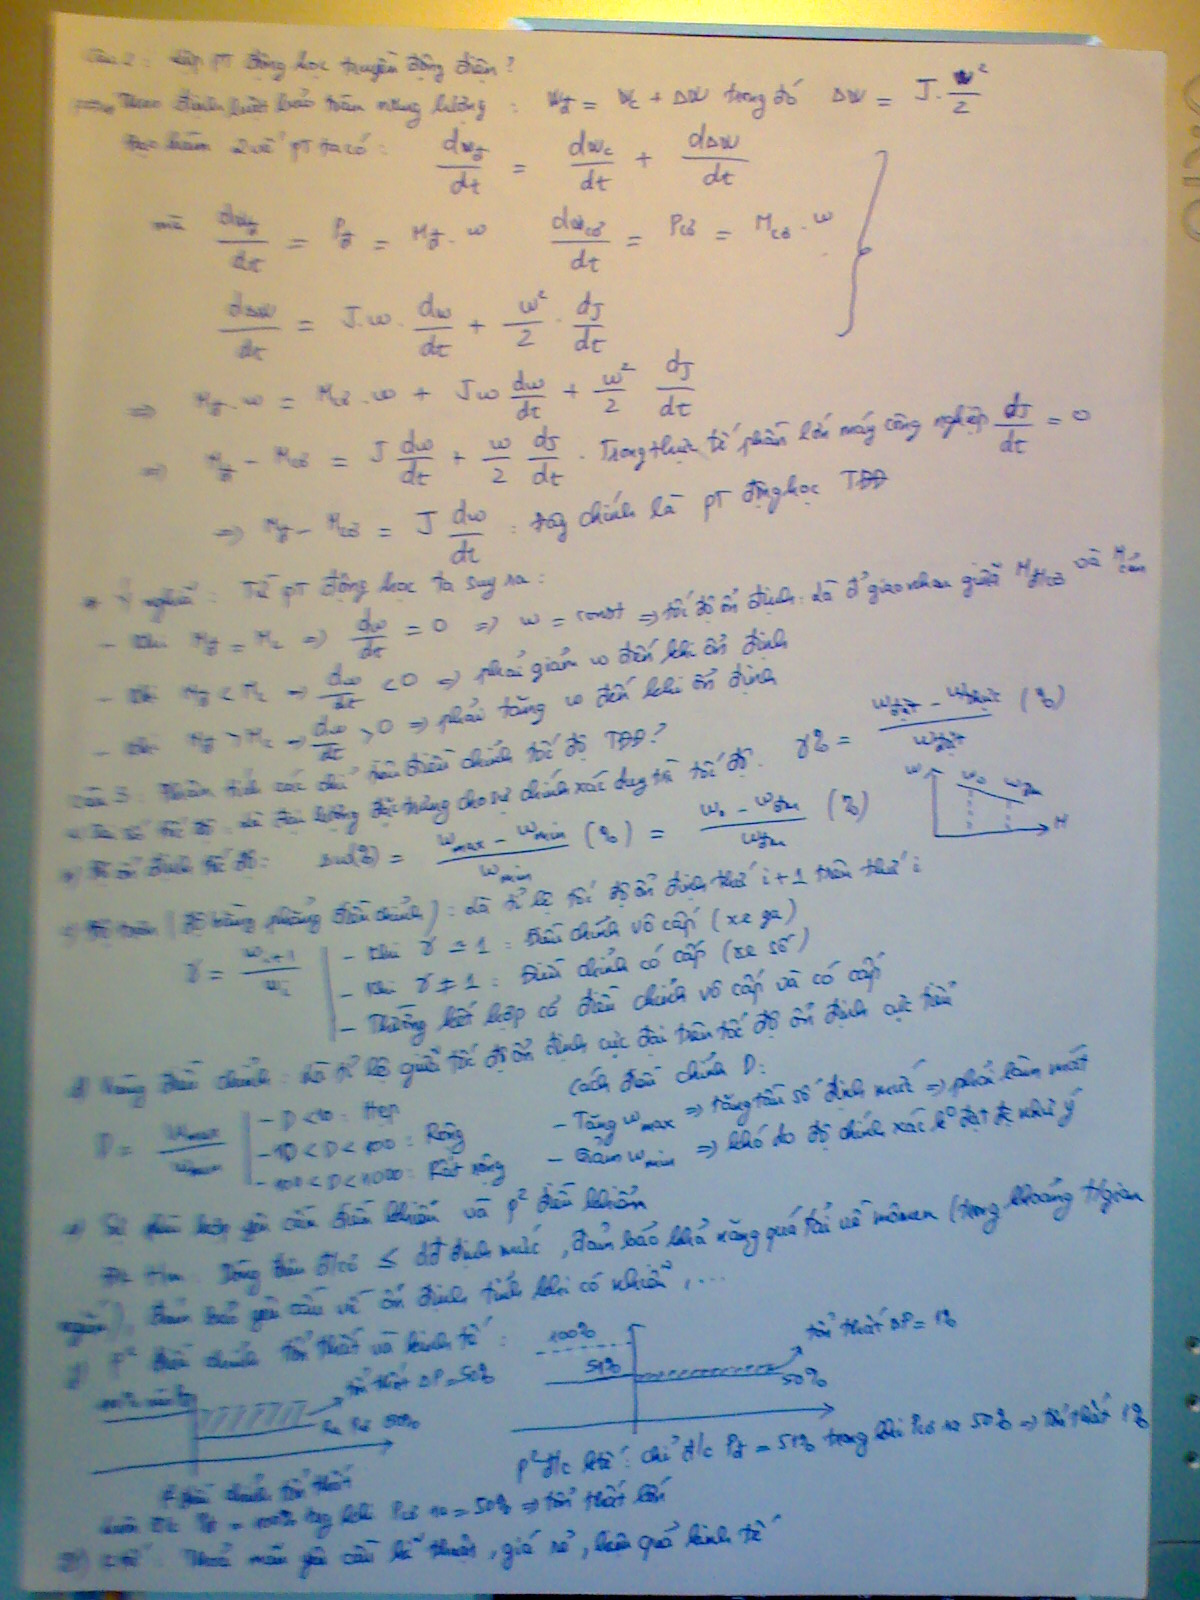 Câu 2: Lập PT động học truyền động điện?
Theo định luật bảo toàn năng lượng: Wđ = Wc + ΔW trong đó ΔW = J.w²/2
Đạo hàm 2 vế PT ta có: dWđ/dt = dWc/dt + dΔW/dt
mà dWđ/dt = Pđ = Mđ.w dWcơ/dt = Pcơ = Mcơ.w
dΔW/dt = J.w.dw/dt + w²/2.dJ/dt
=> Mđ.w = Mcơ.w + Jw dw/dt + w²/2 dJ/dt
=> Mđ - Mcơ = J dw/dt + w/2 dJ/dt. Trong thực tế phần lớn máy công nghiệp dJ/dt = 0
=> Mđ - Mcơ = J dw/dt : đây chính là PT động học TĐĐ
* Ý nghĩa: Từ PT động học ta suy ra:
- Khi Mđ = Mc => dw/dt = 0 => w = const => tốc độ ổn định: là ở giao nhau giữa và Mcản
- Khi Mđ < Mc => dw/dt < 0 => phải giảm w đến khi ổn định
- Khi Mđ > Mc => dw/dt > 0 => phải tăng w đến khi ổn định
Câu 3: Phân tích các chỉ tiêu điều chỉnh tốc độ TĐĐ?
tốc độ: là đại lượng đặc trưng cho sự chính xác duy trì tốc độ. γ% = wđặt - wthực / wđặt (%)
Độ ổn định tốc độ: Δw(%) = wmax - wmin / wmin (%) = w0 - wđm / wđm (%)
w w0 wđm M
c) Độ trơn (độ bằng phẳng điều chỉnh): là tỉ lệ tốc độ ổn định thứ i+1 trên thứ i
γ = wi+1/wi - Khi γ = 1: Điều chỉnh vô cấp (xe ga)
- Khi γ ≠ 1: Điều chỉnh có cấp (xe số)
- Thường kết hợp cả điều chỉnh vô cấp và có cấp
d) Vùng điều chỉnh: là tỉ lệ giữa tốc độ ổn định cực đại trên tốc độ ổn định cực tiểu
D = wmax/wmin - D < 10: Hẹp
- 10 < D < 100: Rộng
- 100 < D < 1000: Rất rộng
Cách điều chỉnh D:
- Tăng wmax => tăng tần số định mức => phải làm mát
- Giảm wmin => khó do độ chính xác k° đạt đc như ý
e) Sự phù hợp yêu cầu điều khiển và p² điều khiển
Dòng điện đ/cơ ≤ dđ định mức, đảm bảo khả năng quá tải về mômen (trong khoảng thgian
ngắn), đảm bảo yêu cầu về ổn định tĩnh khi có nhiễu, ...
f) P² điều chỉnh tổn thất và kinh tế:
tổn thất ΔP = 50%
Pcơ 50%
điều chỉnh tổn thất
100%
51%
tổn thất ΔP = 1%
50%
p² đ/c ktế: chỉ đ/c Pđ = 51% trong khi Pcơ ra 50% => tổn thất 1%
luôn Pđ = 100% khi Pcơ ra = 50% => tổn thất lớn
Thoả mãn yêu cầu kĩ thuật, giá rẻ, hiệu quả kinh tế